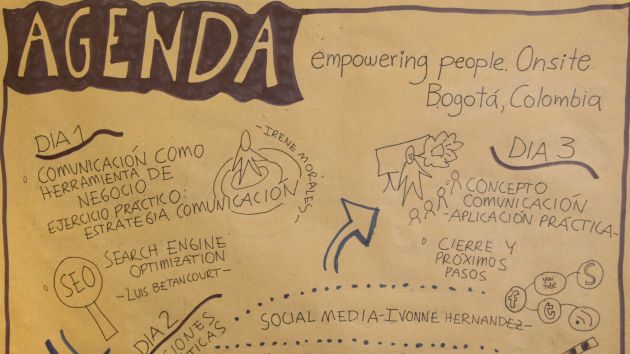 AGENDA
empowering people. Onsite
Bogotá, Colombia
DIA 1
COMUNICACIÓN COMO
HERRAMIENTA DE
NEGOCIO
EJERCICIO PRÁCTICO:
ESTRATEGIA COMUNICACIÓN
-IRENE MORALES-
SEO
SEARCH ENGINE
OPTIMIZATION
-LUIS BETANCOURT-
DIA 2
DIA 3
CONCEPTO
COMUNICACIÓN
-APLICACIÓN PRÁCTICA-
CIERRE Y
PRÓXIMOS
PASOS
You
TUBE
S
f
t
SOCIAL MEDIA-IVONNE HERNANDEZ-